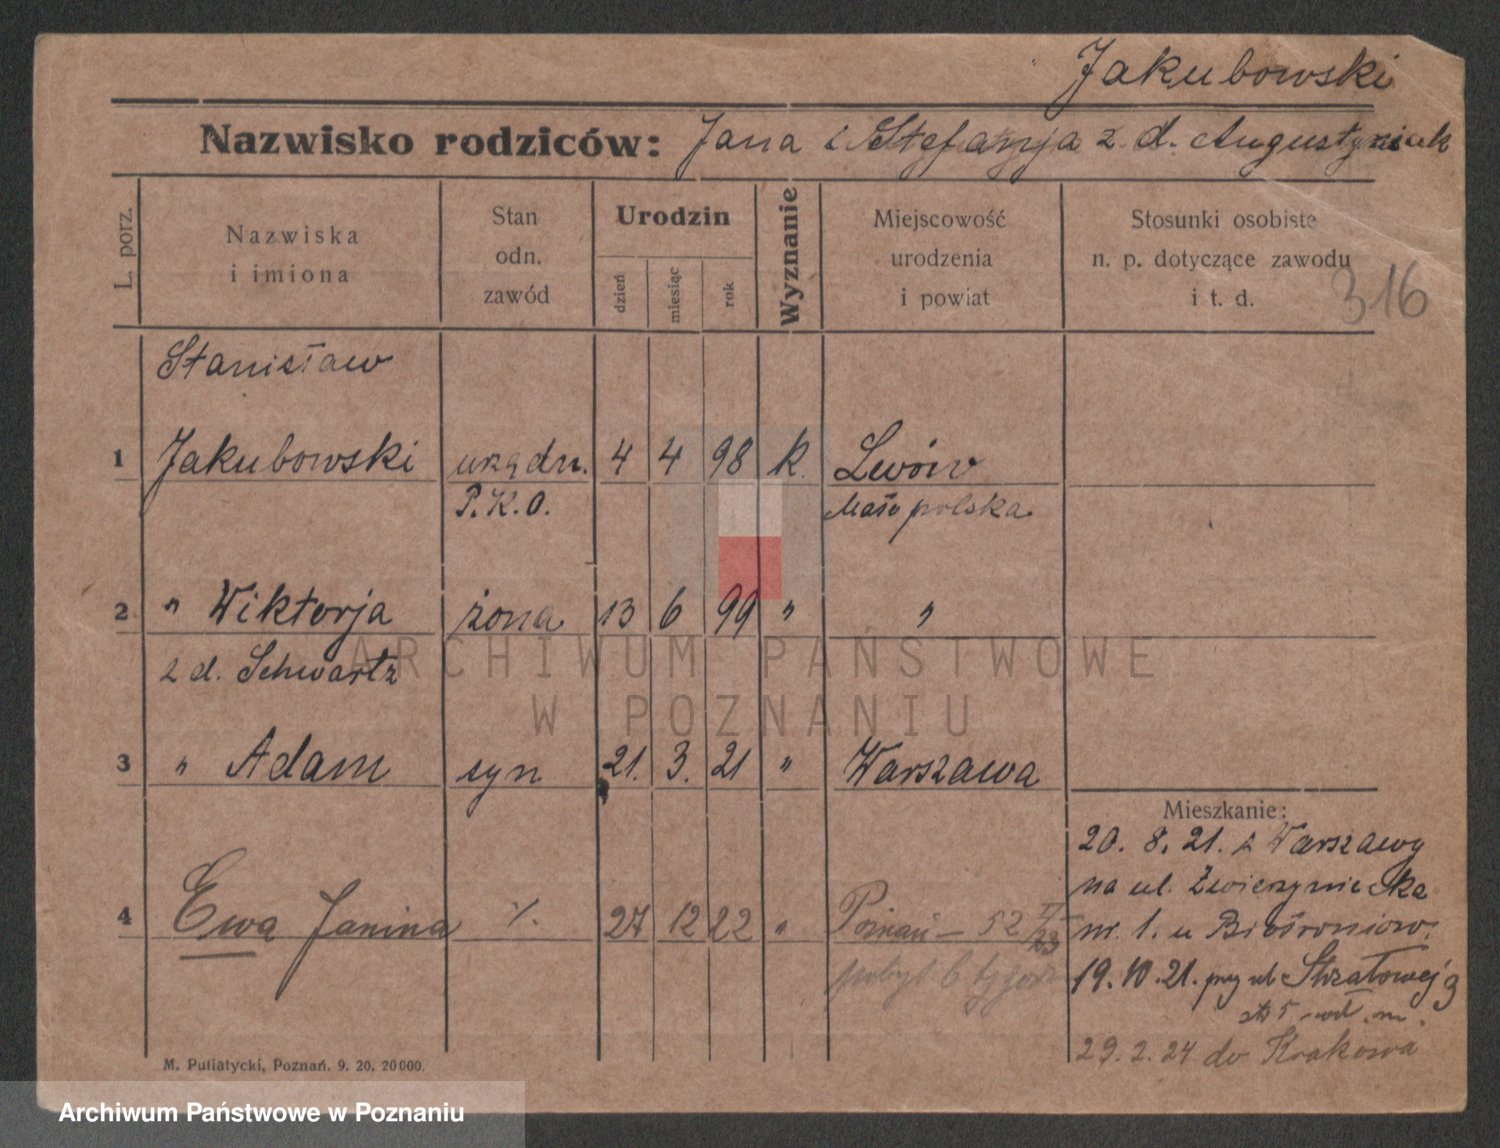 Jakubowski
Nazwisko rodziców: Jana i Stefanja z d. Augustyniak
L. porz.
Nazwiska
i imiona
Stan
odn.
zawód
Urodzin
dzień
miesiąc
rok
Wyznanie
Miejscowość
urodzenia
i powiat
Stosunki osobiste
n. p. dotyczące zawodu
i t. d.
316
Stanisław
1 Jakubowski urzędn. 4 4 98 k. Lwów
P.K.O. Małopolska
2 " Wiktorja żona 13 6 99 " "
z d. Schwartz
3 " Adam syn 21. 3. 21 " Warszawa
Mieszkanie:
20. 8. 21. z Warszawy
na ul. Zwierzyniecka
4 Ewa Janina ./. 27 12 22 " Poznań – 52
nr. 1. u
pobyt 6
19. 10. 21. przy ul Strzałowej 3
29. 2. 24 do Krakowa
M. Putiatycki, Poznań. 9. 20. 20000.
ARCHIWUM PAŃSTWOWE
W POZNANIU
Archiwum Państwowe w Poznaniu